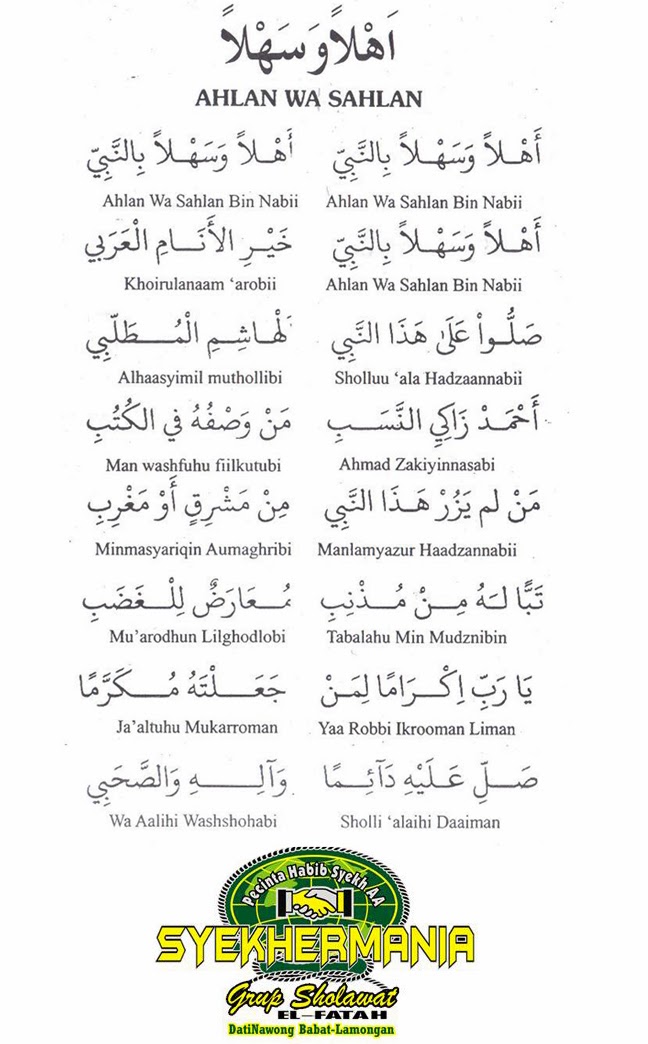 اَهْلاً وَ سَهْلاً
AHLAN WA SAHLAN
أَهْـلاً وَسَهْـلاً بِالنَّبِيِّ أَهْـلاً وَسَهْـلاً بِالنَّبِيِّ
Ahlan Wa Sahlan Bin Nabii Ahlan Wa Sahlan Bin Nabii
أَهْـلاً وَسَهْـلاً بِالنَّبِيِّ خَيْرِ الأَنَـامِ الْعَرَبِي
Khoirulanaam ‘arobii Ahlan Wa Sahlan Bin Nabii
صَلُّـواْ عَلَىٰ هَذَا النَّبِي لْهَـاشِـمِ الْمُـطَلِّبِي
Alhaasyimil muthollibi Sholluu ‘ala Hadzaannabii
أَحْمَـدْ زَاكِيِ النَّسَـبِ مَنْ وَصْفُهُ فِي الكُتُبِ
Man washfuhu fiilkutubi Ahmad Zakiyinnasabi
مَنْ لم يَزُرْ هَـذَا النَّبِي مِنْ مَشْرِقٍ أَوْ مَغْرِبِ
Minmasyariqin Aumaghribi Manlamyazur Haadzannabii
تَبًّا لَـهُ مِـنْ مُـذْنِبِ مُـعَارَضٌ لِلْـغَضَبِ
Mu’arodhun Lilghodlobi Tabalahu Min Mudznibin
يَا رَبِّ اِكْـرَامًا لِمَـنْ جَعَـلْتَهُ مُـكَرَّمًا
Ja’altuhu Mukarroman Yaa Robbi Ikrooman Liman
صَـلِّ عَـلَيْهِ دَآئِـمًا وَآلِـهِ وَالصَّحَبِي
Wa Aalihi Washshohabi Sholli ‘alaihi Daaiman
Pecinta Habib Syekh AA
SYEKHERMANIA
Grup Sholawat
EL-FATAH
DatiNawong Babat-Lamongan